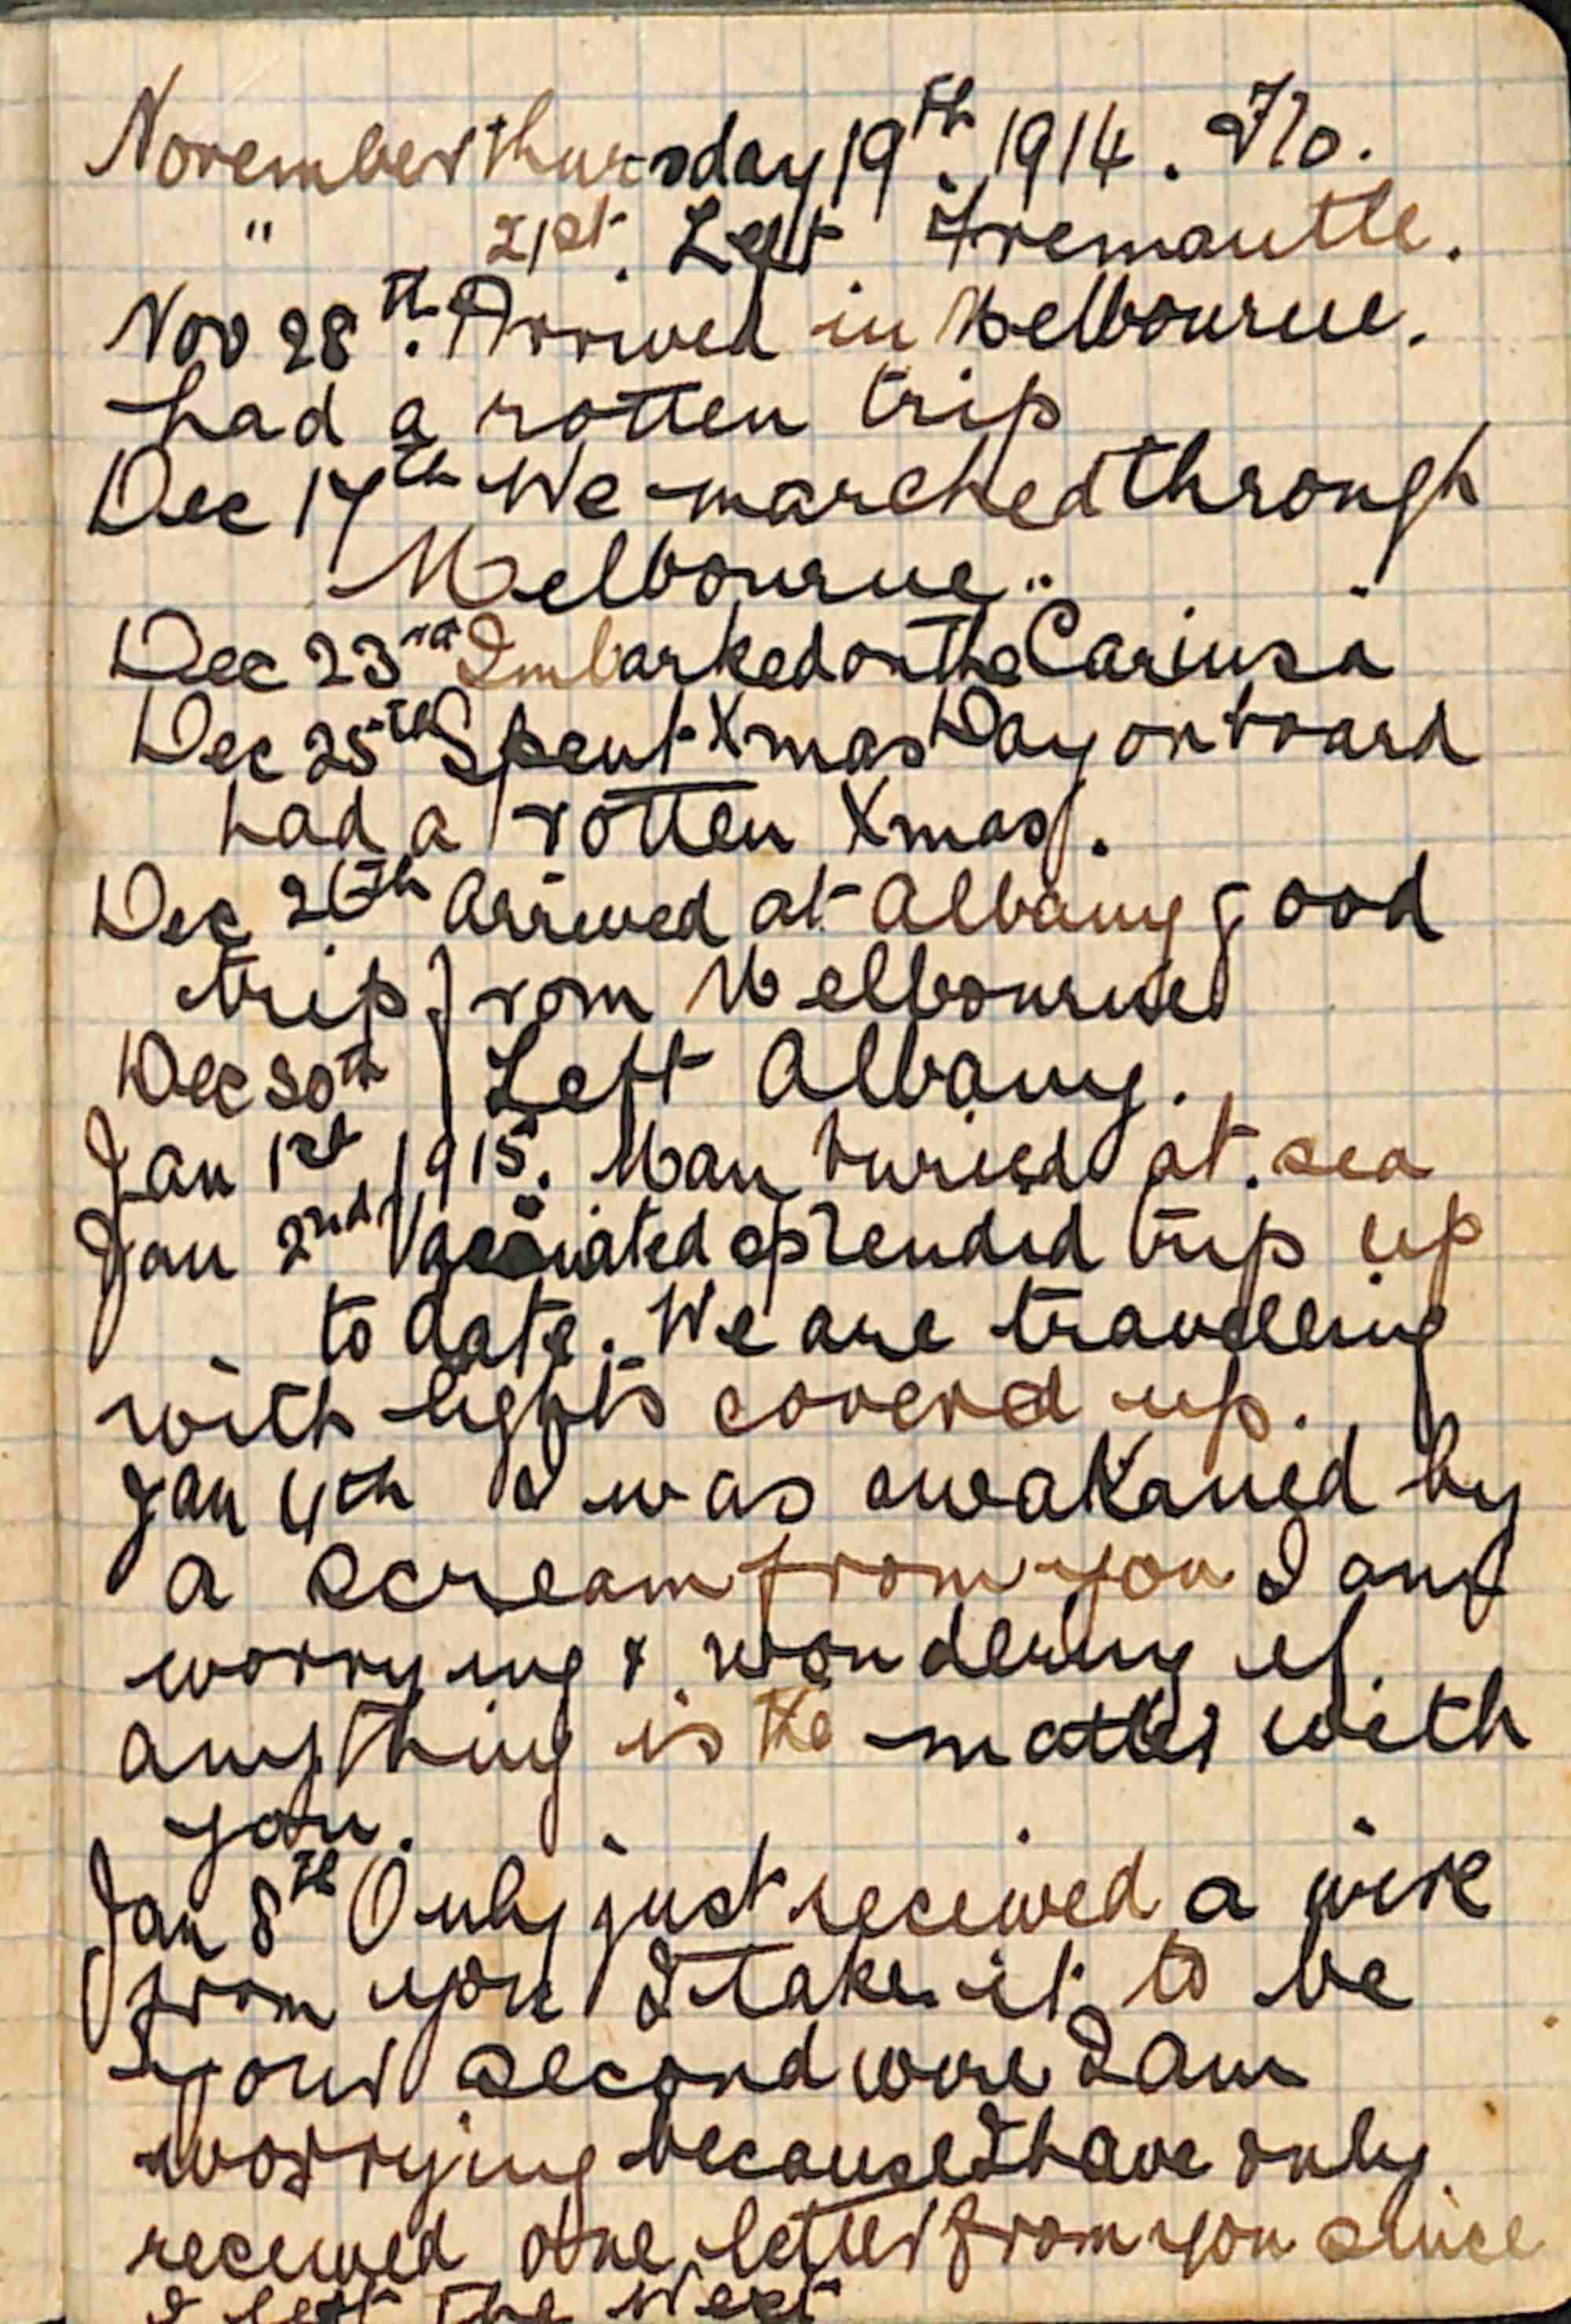 November thursday 19th. 1914. Flo.
" 21st. Left Fremantle.
Nov 28th. Arrived in Melbourne.
had a rotten trip
Dec 17th We marched through
Melbourne..
Dec 23rd Imbarked on the
Dec 25th Spent Xmas Day on board
had a rotten Xmas.
Dec 26th arrived at Albany good
trip from Melbourne
Dec 30th Left Albany.
Jan 1st 1915. Man buried at sea
Jan 2nd splendid trip up
to date. We are travelling
with lights covered up.
Jan 4th I was awakaned by
a scream from you I am
worrying & wondering if
anything is the matter with
you.
Jan 8th Only just received a wire
from you I take it to be
your second wire I am
worrying because I have only
received one letter from you since
I left the West